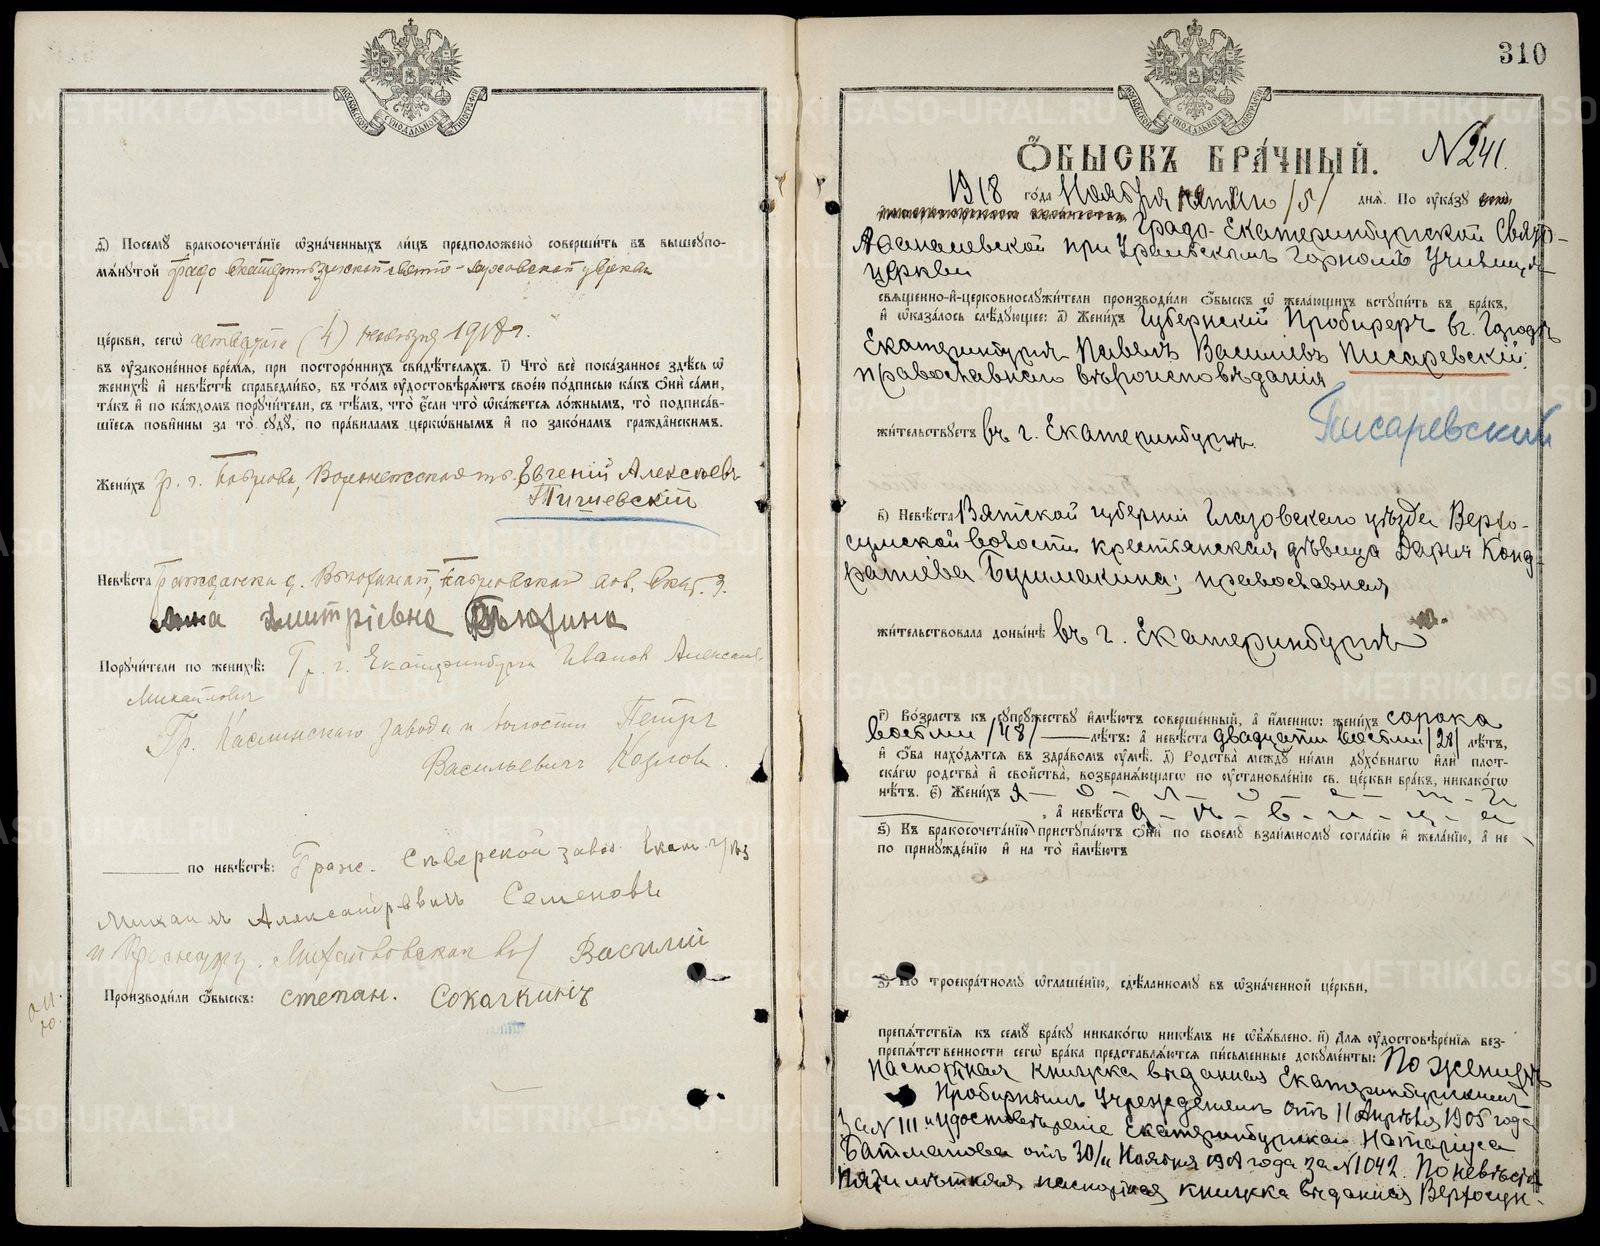 д) Посему бракосочетанїе ѡзначенныхъ лицъ предположено совершить въ вышеупо-
мянутой градо Екатеринбургской церкви
церкви, сегѡ четвертаго (4) ноября 1918 г.
въ узаконенное время, при постороннихъ свидѣтеляхъ. ї) Что все показанное здѣсь ѡ
женихѣ и невѣстѣ справедливо, въ томъ удостовѣряютъ своею подписью какъ ѡни сами,
такъ и по каждомъ поручители, съ тѣмъ, что если что ѡкажется ложнымъ, то подписав-
шїеся повинны за то суду, по правиламъ церкѡвнымъ и по законамъ гражданскимъ.
Женихъ гр. г. Воронежской Евгенїй Алексѣевъ
Невѣста Гражданка
Анна Дмитрїевна
Поручители по женихѣ: Гр. г. Екатеринбурга Иванов Александ.
Михайлович
Гр. Каслинскаго завода и волости Петръ
Васильевичъ Козлов.
по невѣстѣ: Граж. Сѣверской завод. Екат. уѣз
Михаилъ Александровичъ Семеновъ
и Василїй
Производили ѡбыскъ: степан. Сокачкинъ
310
МОСКОВСКОЙ СѴНОДАЛЬНОЙ ТИПОГРАФІИ
МОСКОВСКОЙ СѴНОДАЛЬНОЙ ТИПОГРАФІИ
ѠБЫСКЪ БРАЧНЫЙ. N 241.
1918 года Ноября пятаго /5/ дня. По указу
Градо-Екатеринбургской Свято-
при Уральскомъ Горномъ Училищѣ
Церкви
священно-и-церковнослужители производили ѡбыскъ ѡ желающихъ вступить въ бракъ,
и ѡказалось слѣдующее: а) Женихъ Губернскїй Пробиреръ въ г. Городѣ
Екатеринбургѣ Павелъ Васильевъ Писаревскїй:
православнаго вѣроисповѣданїя
жительствуетъ въ г. Екатеринбургѣ
Писаревский
в) Невѣста Вятской губернїи Глазовскаго уѣзда Верхо-
сунской волости крестьянская дѣвица Дарья Конд-
ратьева Бушмакина; православная
жительствовала донынѣ въ г. Екатеринбургѣ
г) Возрастъ къ супружеству имѣютъ совершенный, а именно: женихъ сорока
восьми /48/ лѣтъ: а невѣста двадцати восьми /28/ лѣтъ,
и ѡба находятся въ здравомъ умѣ. д) Родства между ними духовнагѡ или плот-
скагѡ родства и свойства, возбраняющагѡ по установленїю св. церкви бракъ, никакогѡ
нѣтъ. є) Женихъ х – о – л – о – с – т – й
, а невѣста д – ѣ – в – и – ц – а
ѕ) Къ бракосочетанїю приступаютъ ѡни по своему взаимному согласїю и желанїю, а не
по принужденїю и на то имѣютъ
з) По троекратному ѡглашенїю, сдѣланному въ ѡзначенной церкви,
препятствїя къ сему браку никакогѡ никѣмъ не ѡбъявлено. и) Для удостовѣренїя без-
препятственности сегѡ брака представляются письменные документы: По женихѣ
паспортная книжка выданная Екатеринбургскимъ
Пробирнымъ Учрежденїемъ отъ 11 Апрѣля 1905 года
за N 111 и удостовѣренїе Екатеринбургскаго Натарїуса
отъ 30/ Ноября года за N 1042. По невѣстѣ
Пятилѣтняя паспортная книжка выданная Верхосун-